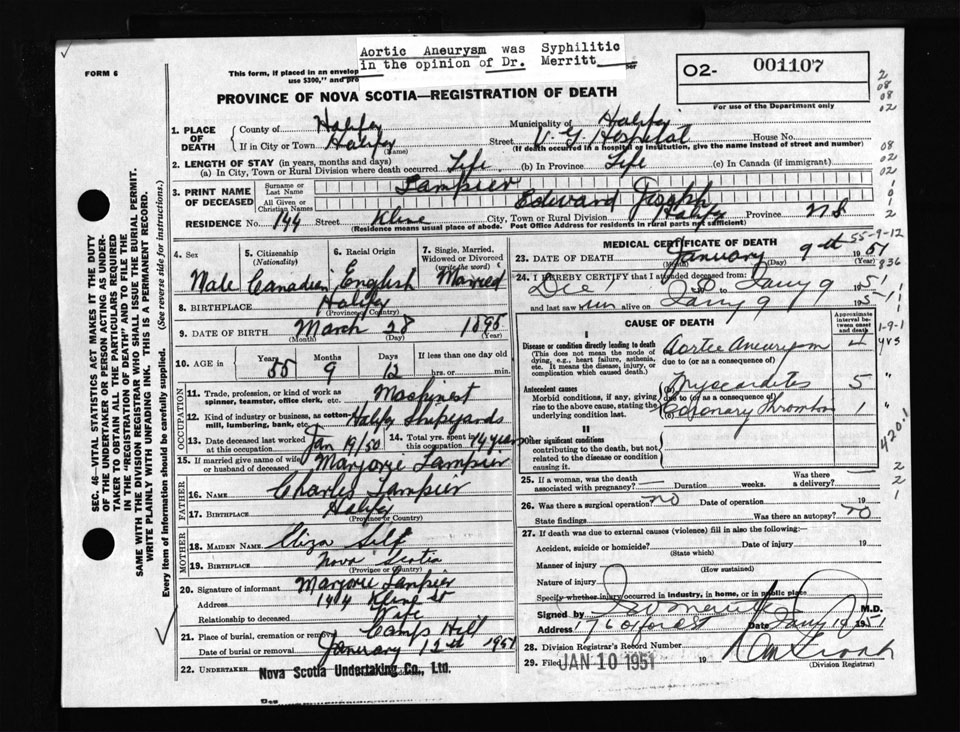 Aortic Aneurysm was Syphilitic
in the opinion of Dr. Merritt
FORM 6
This form, if placed in an envelop
use $300," and pro
O2- 001107
PROVINCE OF NOVA SCOTIA—REGISTRATION OF DEATH
For use of the Department only
1. PLACE OF DEATH
County of Halifax Municipality of Halifax
If in City or Town Halifax Street V. G. Hospital House No.
(Name) (If death occurred in a hospital or institution, give the name instead of street and number)
2. LENGTH OF STAY (in years, months and days)
(a) In City, Town or Rural Division where death occurred Life (b) In Province Life (c) In Canada (if immigrant)
3. PRINT NAME OF DECEASED
Surname or Last Name Lampier
All Given or Christian Names Edward Joseph
RESIDENCE No. 144 Street Kline City, Town or Rural Division Halifax Province N S
(Residence means usual place of abode. Post Office Address for residents in rural parts not sufficient)
4. Sex Male
5. Citizenship (Nationality) Canadian
6. Racial Origin English
7. Single, Married, Widowed or Divorced (write the word) Married
8. BIRTHPLACE Halifax
(Province or Country)
9. DATE OF BIRTH March 28 1895
(Month) (Day) (Year)
10. AGE in Years 55 Months 9 Days 12 If less than one day old
hrs. or min.
OCCUPATION
11. Trade, profession, or kind of work as spinner, teamster, office clerk, etc. Machinist
12. Kind of industry or business, as cotton-mill, lumbering, bank, etc. Halifax Shipyards
13. Date deceased last worked at this occupation Jan 19/50 14. Total yrs. spent in this occupation 14 years
15. If married give name of wife or husband of deceased Marjorie Lampier
FATHER
16. NAME Charles Lampier
17. BIRTHPLACE Halifax
(Province or Country)
MOTHER
18. MAIDEN NAME Eliza Self
19. BIRTHPLACE Nova Scotia
(Province or Country)
20. Signature of informant Marjorie Lampier
Address 144 Kline St
Relationship to deceased Wife
21. Place of burial, cremation or removal Camp Hill
Date of burial or removal January 12th 1951
22. UNDERTAKER Nova Scotia Undertaking Co., Ltd.
MEDICAL CERTIFICATE OF DEATH
23. DATE OF DEATH January 9th 1951
(Month) (Day) (Year)
24. I HEREBY CERTIFY that I attended deceased from:
Jany 9 1951
and last saw h alive on Jany 9 1951
CAUSE OF DEATH
Approximate interval between onset and death
I
Disease or condition directly leading to death Aortic Aneurysm yrs
(This does not mean the mode of dying, e.g., heart failure, asthenia, etc. It means the disease, injury, or complication which caused death.)
due to (or as a consequence of)
Myocarditis 5 "
Antecedent causes
Morbid conditions, if any, giving rise to the above cause, stating the underlying condition last.
due to (or as a consequence of)
Coronary Thrombos 1 "
II
Other significant conditions
contributing to the death, but not related to the disease or condition causing it.
25. If a woman, was the death associated with pregnancy? Duration weeks. Was there a delivery?
26. Was there a surgical operation? no Date of operation 19
State findings Was there an autopsy? no
27. If death was due to external causes (violence) fill in also the following:
Accident, suicide or homicide? Date of injury 19
(State which)
Manner of injury
(How sustained)
Nature of injury
Specify whether injury occurred in industry, in home, or in public place
Signed by Merritt M.D.
Address 176 Oxford St Date Jany 10 1951
28. Division Registrar's Record Number
29. Filed JAN 10 1951 19
(Division Registrar)
SEC. 46—VITAL STATISTICS ACT MAKES IT THE DUTY
OF THE UNDERTAKER OR PERSON ACTING AS UNDER-
TAKER TO OBTAIN ALL THE PARTICULARS REQUIRED
IN THE "REGISTRATION OF DEATH" AND TO FILE THE
SAME WITH THE DIVISION REGISTRAR WHO SHALL ISSUE THE BURIAL PERMIT.
WRITE PLAINLY WITH UNFADING INK. THIS IS A PERMANENT RECORD.
Every item of Information should be carefully supplied. (See reverse side for instructions.)